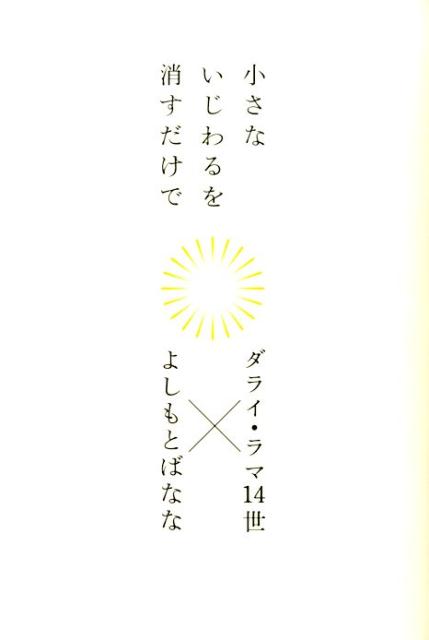 小さな
いじわるを
消すだけで
ダライ・ラマ14世
×
よしもとばなな